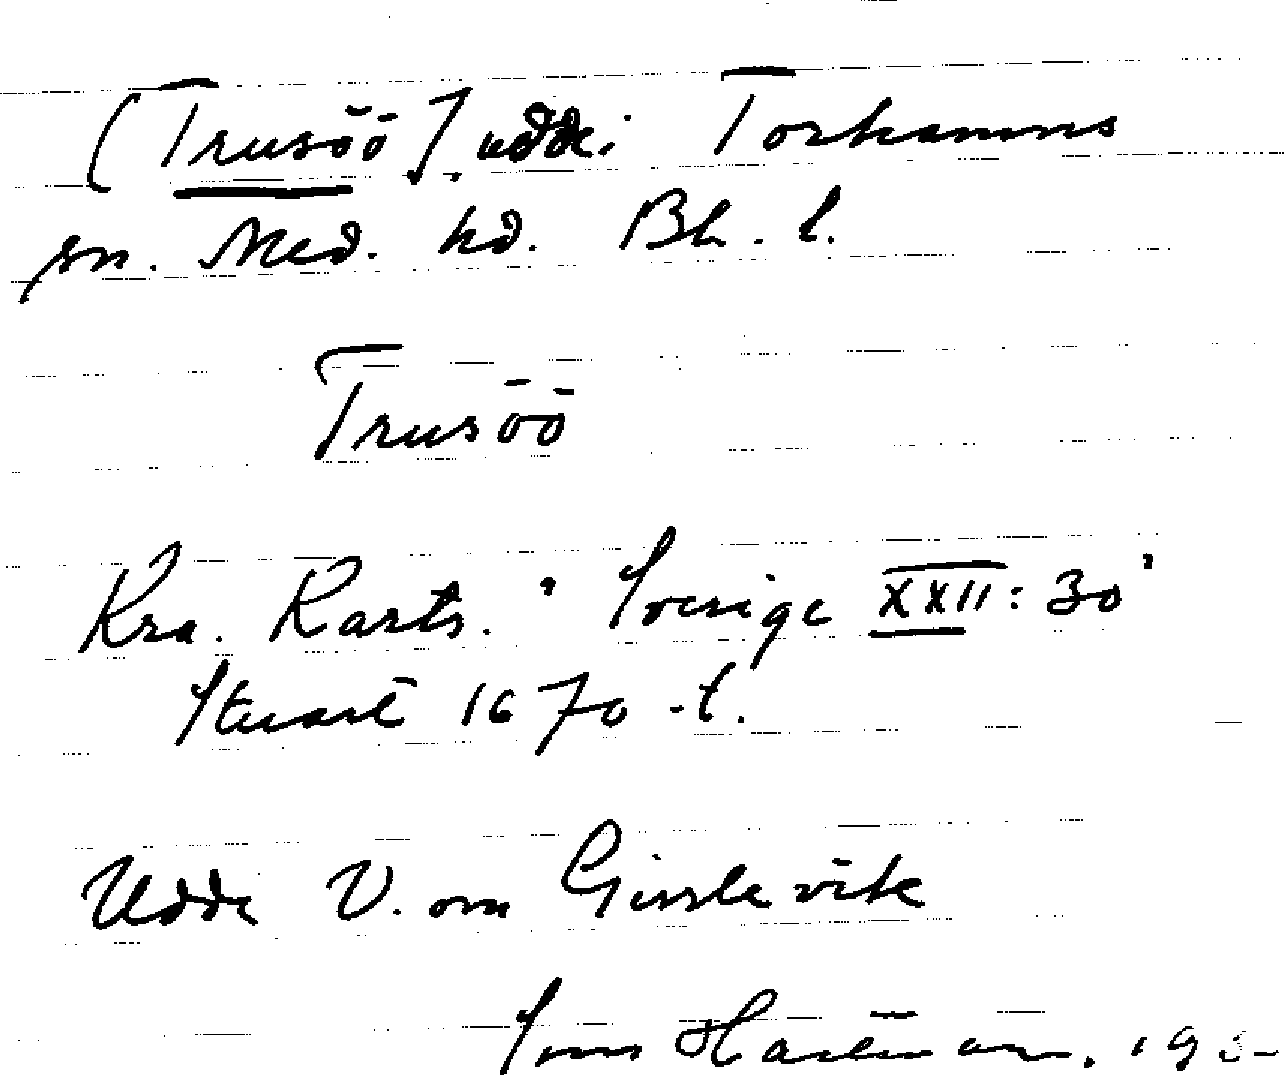 [Trusöö]. udde i Torhamns
sn. Med. hd. Bl. l.
Trusöö
Kra. Karts. "Sverige XXII: 30"
Stuart 1670-t.
Udde V. om Gisslevik
Hartman. 193